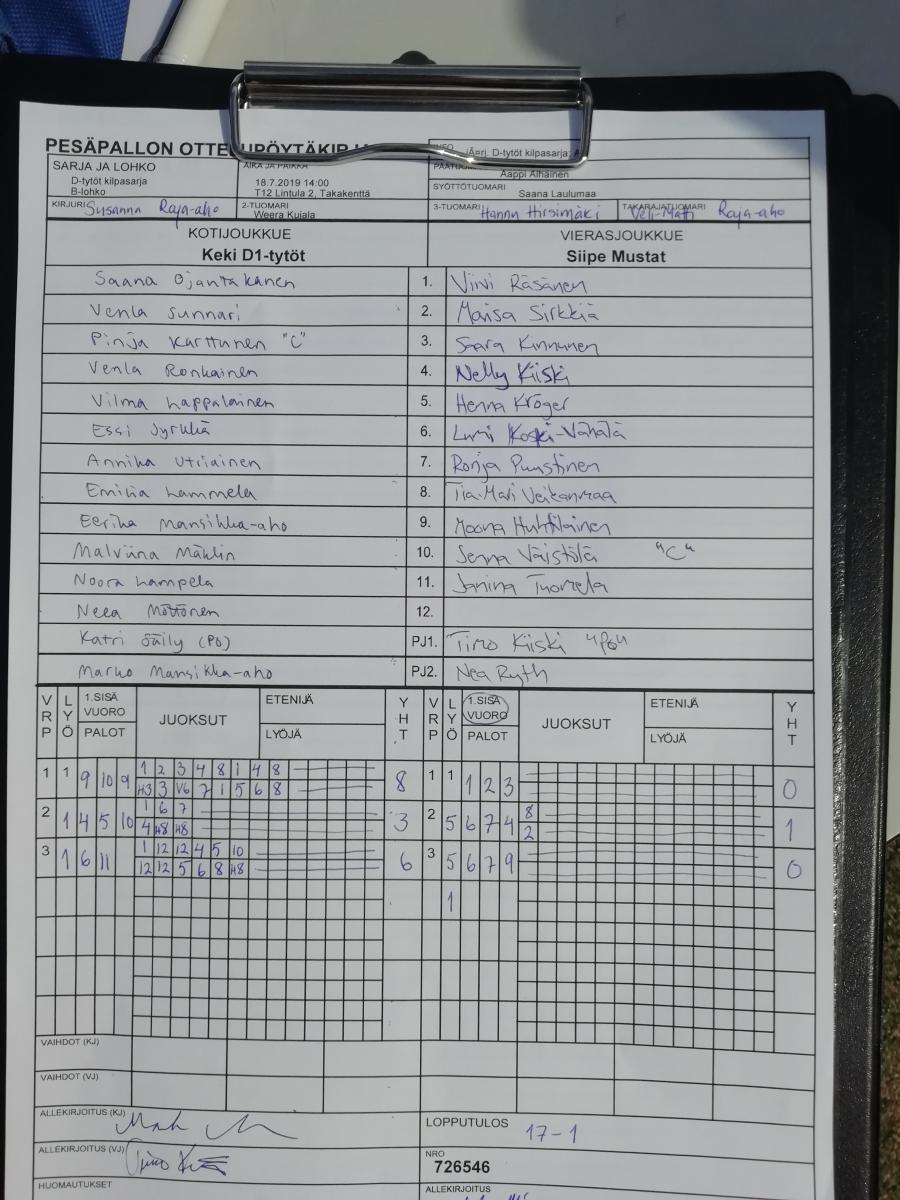 PESÄPALLON OTTELUPÖYTÄKIRJA
INFO jÄsri, D-tytöt kilpasarja;
SARJA JA LOHKO
D-tytöt kilpasarja
B-lohko
AIKA JA PAIKKA
18.7.2019 14:00
T12 Lintula 2, Takakenttä
Aappi Alhainen
SYÖTTÖTUOMARI
Saana Laulumaa
KIRJURI Susanna Raja-aho
2-TUOMARI
Weera Kujala
3-TUOMARI Hannu Hirsimäki
TAKARAJATUOMARI
Veli-Matti Raja-aho
KOTIJOUKKUE
Keki D1-tytöt
VIERASJOUKKUE
Siipe Mustat
Saana Ojantakanen 1. Viivi Räsänen
Venla Sunnari 2. Maisa Sirkkiä
Pinja Karttunen "C" 3. Saara Kinnunen
Venla Ronkainen 4. Nelly Kiiski
Vilma Lappalainen 5. Henna Kröger
Essi Jyrkkä 6. Lumi Koski-Vähälä
Annika Utriainen 7. Ronja Puustinen
Emilia Lammela 8. Tia-Mari Veikanmaa
Eerika Mansikka-aho 9. Moona Huhtilainen
Malviina Mäklin 10. Jenna Väistölä "C"
Noora Lampela 11. Janina Tuomela
Neea Möttönen 12.
Katri Säily (PJ) PJ1. Timo Kiiski "PJ"
Marko Mansikka-aho PJ2. Nea Ryth
VRP LYÖ 1.SISÄ VUORO PALOT JUOKSUT ETENIJÄ LYÖJÄ YHT VRP LYÖ 1.SISÄ VUORO PALOT JUOKSUT ETENIJÄ LYÖJÄ YHT
1 1 9 10 9 1 2 3 4 8 1 4 8 8 1 1 1 2 3 0
H3 3 V6 7 1 5 6 8
2 1 4 5 10 1 6 7 3 2 5 6 7 4 8 1
4 H8 H8 2
3 1 6 11 1 12 12 4 5 10 6 3 5 6 7 9 0
12 12 5 6 8 H8
1
VAIHDOT (KJ)
VAIHDOT (VJ)
ALLEKIRJOITUS (KJ)
LOPPUTULOS 17-1
ALLEKIRJOITUS (VJ)
NRO
726546
HUOMAUTUKSET
ALLEKIRJOITUS